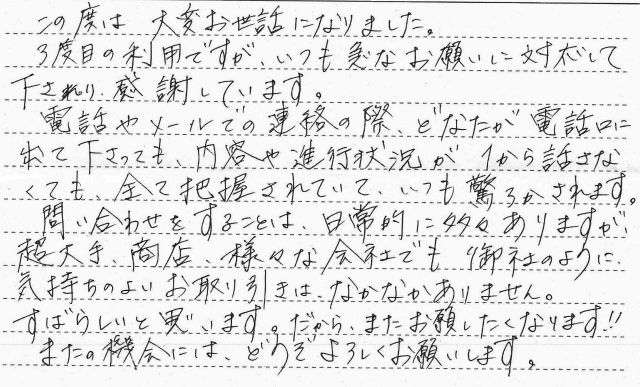 この度は 大変お世話になりました。
3度目の利用ですが、いつも急なお願いに対応して
下さり、感謝しています。
電話やメールでの連絡の際、どなたが電話口に
出て下さっても、内容や進行状況が1から話さな
くても、全て把握されていて、いつも驚ろかされます。
問い合わせをすることは、日常的に多々ありますが、
超大手、商店、様々な会社でも 御社のように、
気持ちのよいお取り引きは、なかなかありません。
すばらしいと思います。だから、またお願したくなります!!
またの機会には、どうぞよろしくお願いします。